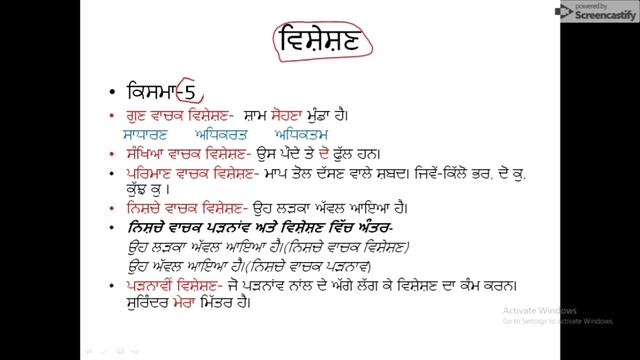 powered by
Screencastify
ਵਿਸ਼ੇਸ਼ਣ
• ਕਿਸਮਾ-5
• ਗੁਣ ਵਾਚਕ ਵਿਸ਼ੇਸ਼ਣ- ਸ਼ਾਮ ਸੋਹਣਾ ਮੁੰਡਾ ਹੈ।
ਸਾਧਾਰਣ ਅਧਿਕਰਤ ਅਧਿਕਤਮ
• ਸੰਖਿਆ ਵਾਚਕ ਵਿਸ਼ੇਸ਼ਣ- ਉਸ ਪੌਦੇ ਤੇ ਦੋ ਫੁੱਲ ਹਨ।
• ਪਰਿਮਾਣ ਵਾਚਕ ਵਿਸ਼ੇਸ਼ਣ- ਮਾਪ ਤੋਲ ਦੱਸਣ ਵਾਲੇ ਸ਼ਬਦ। ਜਿਵੇਂ-ਕਿੱਲੋ ਭਰ, ਦੋ ਕੁ,
ਕੁੱਝ ਕੁ ।
• ਨਿਸ਼ਚੇ ਵਾਚਕ ਵਿਸ਼ੇਸ਼ਣ- ਉਹ ਲੜਕਾ ਅੱਵਲ ਆਇਆ ਹੈ।
• ਨਿਸ਼ਚੇ ਵਾਚਕ ਪੜਨਾਂਵ ਅਤੇ ਵਿਸ਼ੇਸ਼ਣ ਵਿੱਚ ਅੰਤਰ-
ਉਹ ਲੜਕਾ ਅੱਵਲ ਆਇਆ ਹੈ।(ਨਿਸ਼ਚੇ ਵਾਚਕ ਵਿਸ਼ੇਸ਼ਣ)
ਉਹ ਅੱਵਲ ਆਇਆ ਹੈ।(ਨਿਸ਼ਚੇ ਵਾਚਕ ਪੜਨਾਵ)
• ਪੜਨਾਵੀਂ ਵਿਸ਼ੇਸ਼ਣ- ਜੋ ਪੜਨਾਂਵ ਨਾਂਲ ਦੇ ਅੱਗੇ ਲੱਗ ਕੇ ਵਿਸ਼ੇਸ਼ਣ ਦਾ ਕੰਮ ਕਰਨ।
ਸੁਰਿੰਦਰ ਮੇਰਾ ਮਿੱਤਰ ਹੈ।
Activate Windows
Go to Settings to activate Windows.